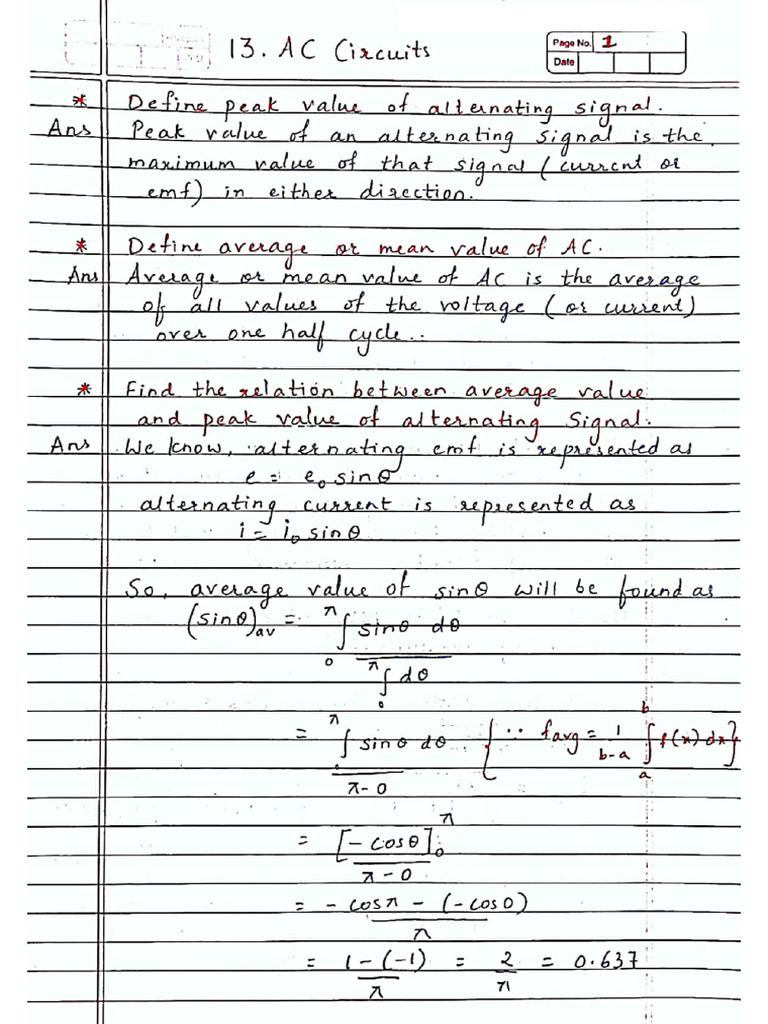 13. AC Circuits
Page No. 1
Date
* Define peak value of alternating signal.
Ans Peak value of an alternating signal is the
maximum value of that signal (current or
emf) in either direction.
* Define average or mean value of AC.
Ans Average or mean value of AC is the average
of all values of the voltage (or current)
over one half cycle..
* Find the relation between average value
and peak value of alternating Signal.
Ans We know, alternating emf is represented as
e = e₀ sinθ
alternating current is represented as
i = i₀ sinθ
So, average value of sinθ will be found as
(sinθ)av = ₀∫^π sinθ dθ / ₀∫^π dθ
= ₀∫^π sinθ dθ / π-0 {∵ favg = 1/b-a ₐ∫^b f(x) dx}
= [-cosθ]₀^π / π-0
= -cosπ - (-cos0) / π
= 1-(-1) / π = 2/π = 0.637